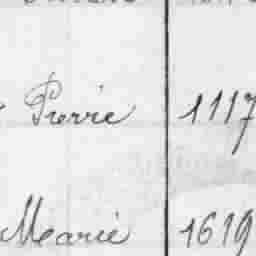 Pierre 1117
Marie 1619